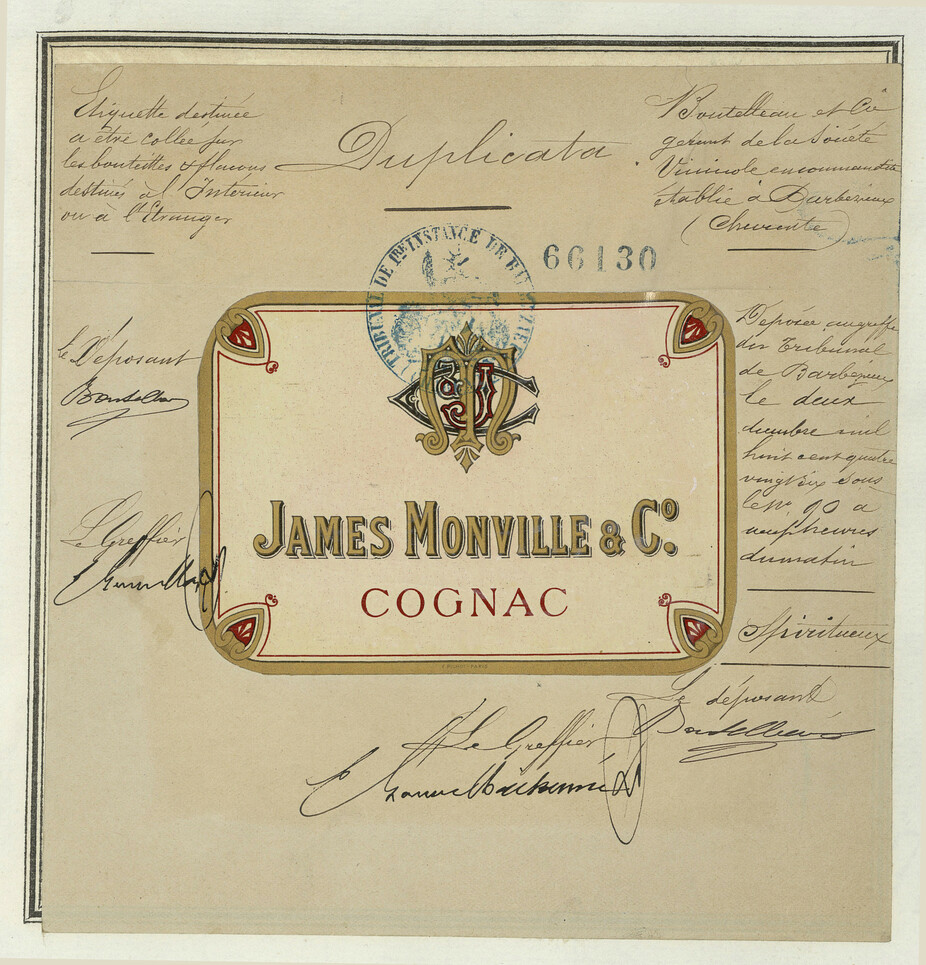 Etiquette destinée
a être collée sur
les bouteilles & flacons
destinés à l'Intérieur
ou à l'Etranger
Duplicata
Boutelleau et Cie
gérant de la Société
Vinicole en commandite
établie à Barbezieux
(Charente)
TRIBUNAL DE 1ère INSTANCE DE BARBEZIEUX
66130
le Déposant
Boutelleau
Le Greffier
JAMES MONVILLE & Co.
COGNAC
Déposée au greffe
du Tribunal
de Barbezieux
le deux
décembre mil
huit cent quatre
vingt six sous
le No 90 à
neuf heures
du matin
Spiritueux
Le déposant
Boutelleau
Le Greffier